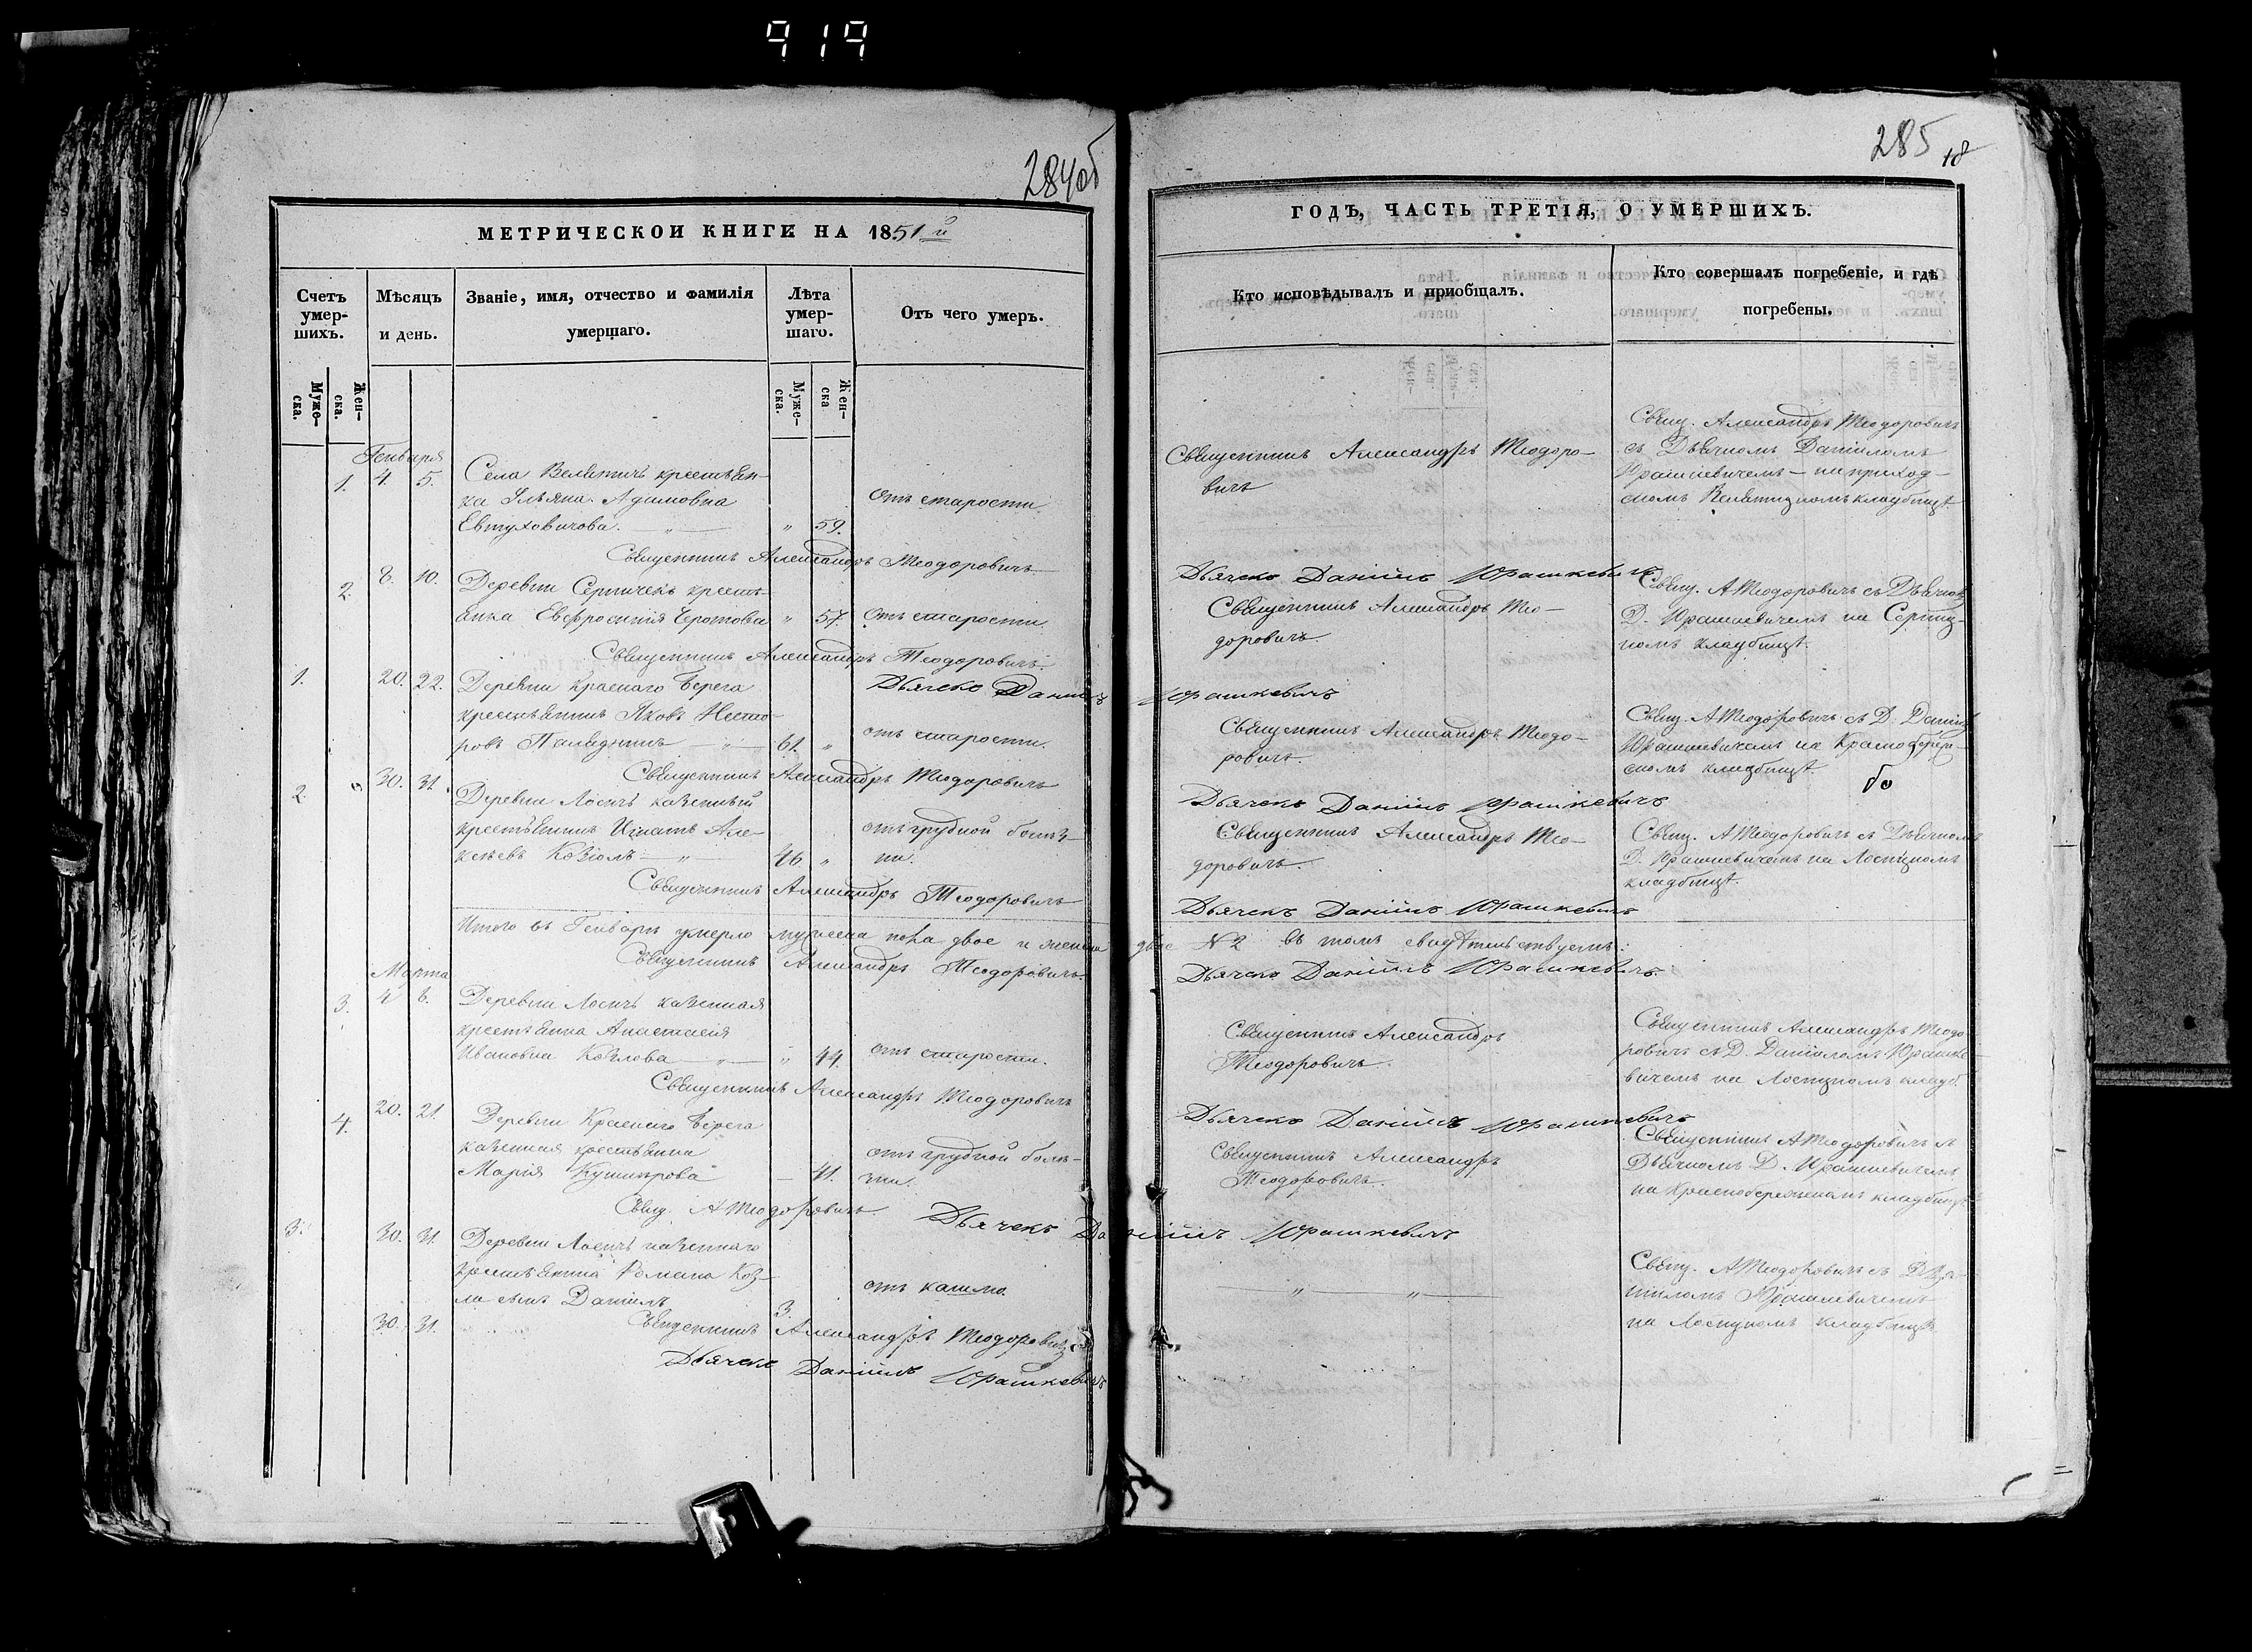 919
284об
МЕТРИЧЕСКОЙ КНИГИ НА 1851й
Счетъ умер-шихъ.
Мѣсяцъ и день.
Званіе, имя, отчество и фамилія умершаго.
Лѣта умер-шаго.
Отъ чего умеръ.
Муже-ска.
Жен-ска.
Муже-ска.
Жен-ска
Генваря
1. 4. 5.
Села Велятичъ крестьян-
ка Ульяна Адамовна
Евтуховичова. " 59.
отъ старости
Священникъ Александръ Теодоровичъ
2. 8. 10.
Деревни Серпичекъ кресть-
янка Евфросинія " 57. отъ старости.
Священникъ Александръ Теодоровичъ.
1. 20. 22.
Деревни Краснаго Берега
Дьячекъ Даніилъ
крестьянинъ Яковъ Несто-
ровъ 61. "
отъ старости.
Священникъ Александръ Теодоровичъ
2. 30. 31.
Деревни Лосичъ казенный
крестьянинъ Игнатъ Але-
ксѣевъ Козіолъ " 46 "
отъ грудной болѣз-
ни.
Священникъ Александръ Теодоровичъ
Итого въ Генварѣ умерло мужеска пола двое и женска двое
Священникъ Александръ Теодоровичъ.
Марта
3. 4 6.
Деревни Лосичъ казенная
крестьянка Анастасія
Ивановна Козлова " " 44 отъ старости.
Священникъ Александръ Теодоровичъ
4. 20. 21.
Деревни Краснаго Берега
казенная крестьянка
Марія 41.
отъ грудной болѣ-
зни.
Свящ. А Теодоровичъ. Дьячекъ Даніилъ
3. 30. 31.
Деревни Лосичъ казеннаго
крестьянина Романа Коз-
ла сынъ Даніилъ 3.
отъ кашлю.
30. 31.
Священникъ Александръ Теодоровичъ
Дьячекъ Даніилъ Юрашкевичъ
285
18
ГОДЪ, ЧАСТЬ ТРЕТІЯ, О УМЕРШИХЪ.
Кто исповѣдывалъ и пріобщалъ.
Кто совершалъ погребеніе, и гдѣ
погребены.
Священникъ Александръ Теодоро-
вичъ
Свящ. Александръ Теодоровичъ
съ Дьячкомъ Даніиломъ
Юрашкевичемъ на приход-
скомъ Велятицкомъ кладбищѣ
Дьячекъ Даніилъ Юрашкевичъ
Священникъ Александръ Тео-
доровичъ.
Свящ. А Теодоровичъ съ Дьячкомъ
Д. Юрашкевичемъ на
номъ кладбищѣ.
Юрашкевичъ
Священникъ Александръ Теодо-
ровичъ.
Свящ. А Теодоровичъ съ Д. Даніил
Юрашкевичемъ на Красноберез-
скомъ кладбищѣ.
Дьячекъ Даніилъ Юрашкевичъ
Священникъ Александръ Тео-
доровичъ.
Свящ. А Теодоровичъ съ Дьячкомъ
Д. Юрашкевичемъ на Лосицкомъ
кладбищѣ.
Дьячекъ Даніилъ Юрашкевичъ
N 2 въ томъ свидѣтельствуемъ:
Дьячекъ Даніилъ Юрашкевичъ.
Священникъ Александръ
Теодоровичъ.
Священникъ Александръ Теодо-
ровичъ съ Д. Даніиломъ Юрашке-
вичемъ на Лосицкомъ кладб.
Дьячекъ Даніилъ Юрашкевичъ
Священникъ Александръ
Теодоровичъ.
Священникъ А Теодоровичъ съ
Дьячкомъ Д. Юрашкевичемъ
на Краснобережскомъ кладбищѣ
Юрашкевичъ
" "
Свящ. А Теодоровичъ съ Д. Да-
ніиломъ Юрашкевичемъ
на Лосицкомъ кладбищѣ